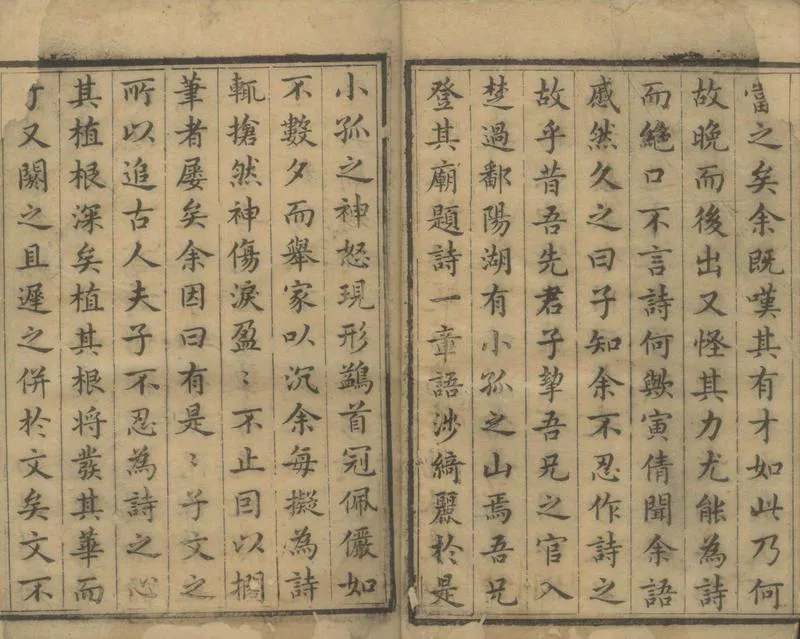 當之矣余既嘆其有才如此乃何
故晚而後出又怪其力尤能為詩
而絕口不言詩何歟寅倩聞余語
慼然久之曰子知余不忍作詩之
故乎昔吾先君子挈吾兄之官入
楚過鄱陽湖有小孤之山焉吾兄
登其廟題詩一章語涉綺麗於是
小孤之神怒現形鷁首冠佩儼如
不數夕而舉家以沉余每擬為詩
輒搶然神傷淚盈〻不止因以擱
筆者屡矣余因曰有是〻子文之
所以追古人夫子不忍為詩之心
其植根深矣植其根将發其華而
又闕之且遲之併於文矣文不